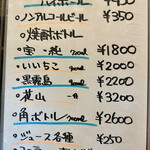 ハイボール ¥450
•ノンアルコールビール ¥350
•焼酎ボトル
•宝・純 720ml ¥1800
•いいちこ 720ml ¥2000
•黒霧島 720ml ¥2200
•茉山 ¥3200
•角ボトル 720ml ¥2600
•ジュース各種 ¥250